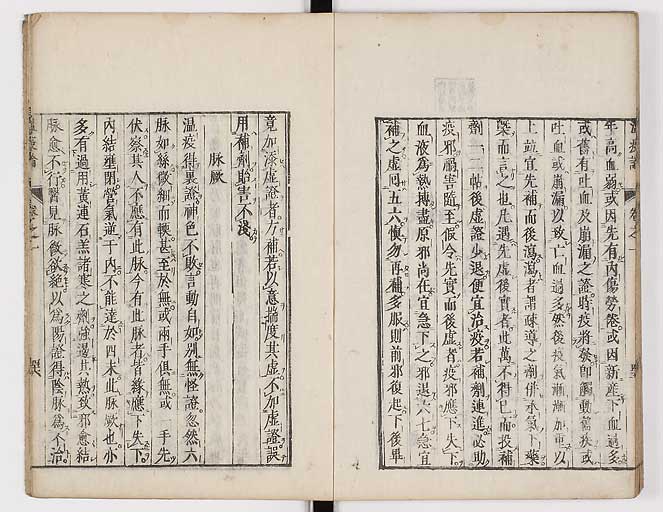 年高血弱或因先有內傷勞倦或因新產下血過多
或舊有吐血及崩漏之證時疫將發即觸動舊疾或
吐血或崩漏以致亡血過多然後疫氣漸漸加重以
上竝宜先補而後瀉瀉者謂疎導之劑併承氣下藥
槩而言之也凡遇先虛後實者此萬不得巳而投補
劑一二帖後虛證少退便宜治疫若補劑連進必助
疫邪禍害隨至假令先實而後虛者疫邪應下失下
血液為熱搏盡原邪尚在宜急下之邪退六七急宜
補之虛回五六慎勿再補多服則前邪復起下後畢
竟加添虛證者方補若以意揣度其虛不加虛證誤
用補劑貽害不淺
脉厥
溫疫得裏證神色不敗言動自如別無怪證忽然六
脉如絲微細而軟甚至於無或兩手俱無或一手先
伏察其人不應有此脉今有此脉者皆緣應下失下
內結壅閉營氣逆于內不能達於四末此脉厥也亦
多有過用黃連石羔諸寒之劑強遏其熱致邪愈結
脉愈不行醫見脉微欲絕以為陽證得陰脉為不治